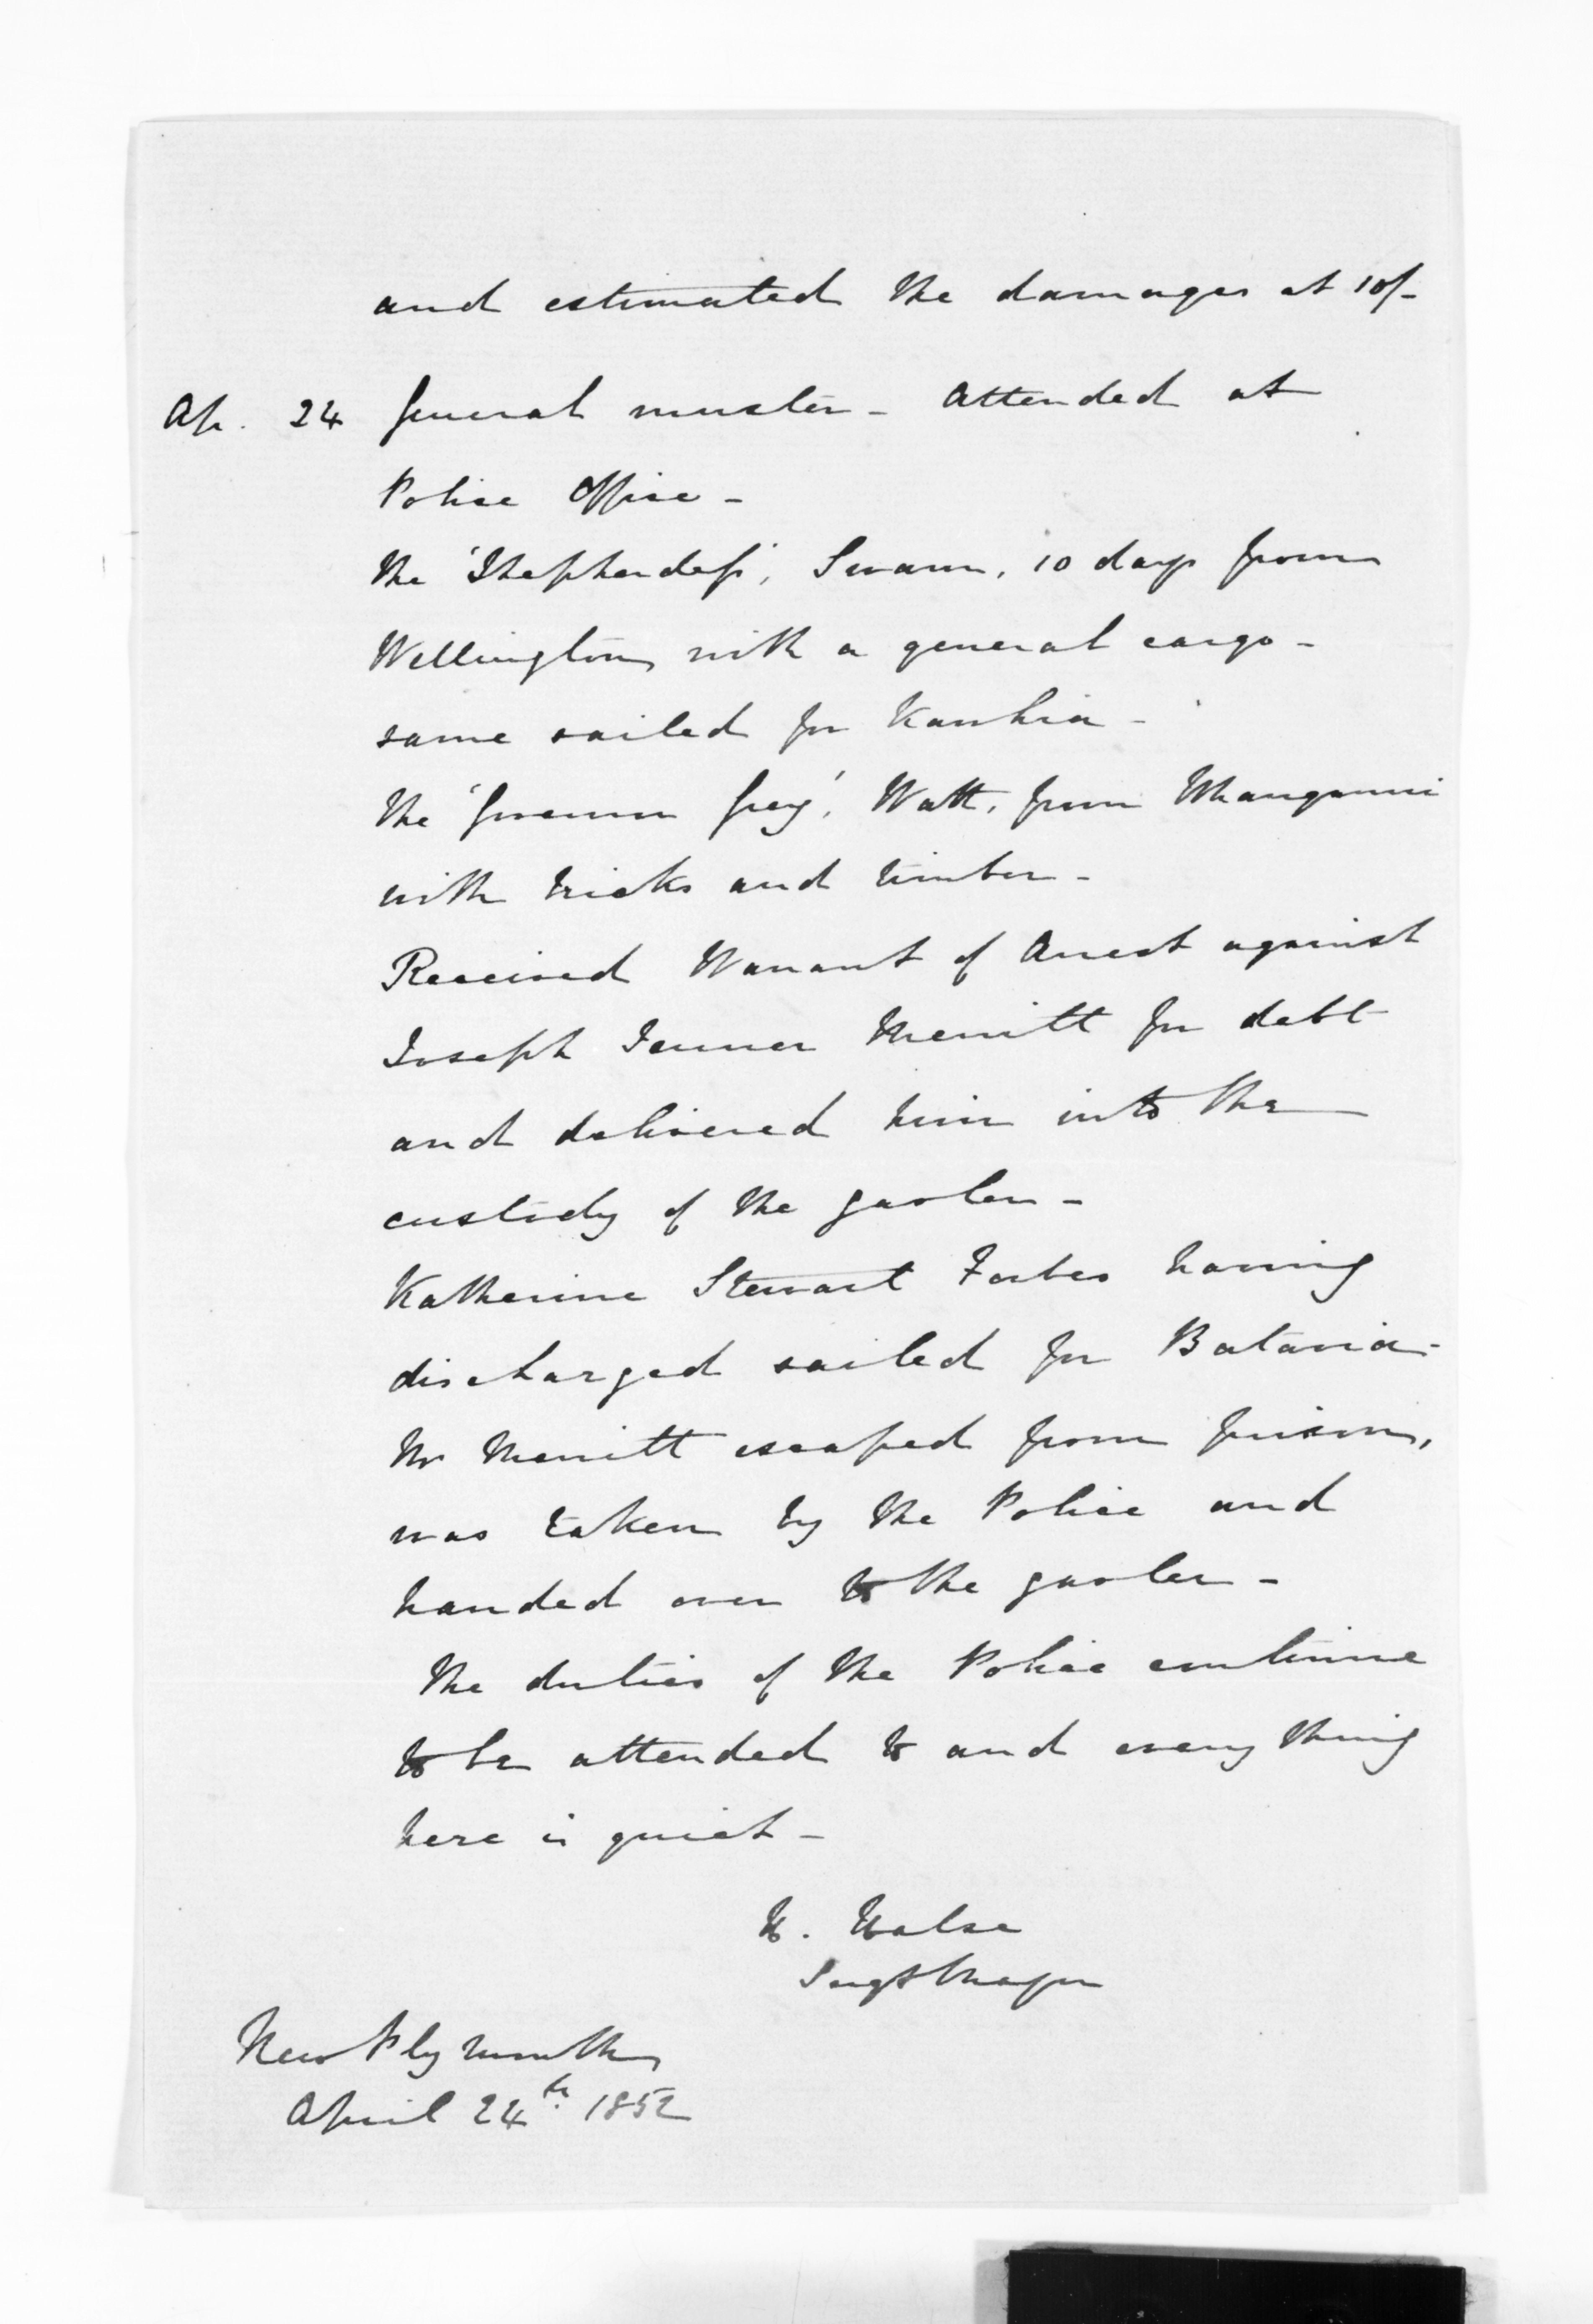 and estimated the damages at 10/-
Ap. 24 General muster - Attended at
Police Office -
The 'Shepherdess', Swann, 10 days from
Wellington with a general cargo -
same sailed for Kawhia -
The 'Governor Grey', Watt, from Whanganui
with bricks and timber -
Received Warrant of Arrest against
Joseph Jenner Merritt for debt
and delivered him into the
custody of the gaoler -
Katherine Stewart Forbes having
discharged sailed for Batavia -
Mr Merritt escaped from prison,
was taken by the Police and
handed over to the gaoler -
The duties of the Police continue
to be attended to and every thing
here is quiet -
H. Halse
Sergt Major
New Plymouth
April 24th 1852